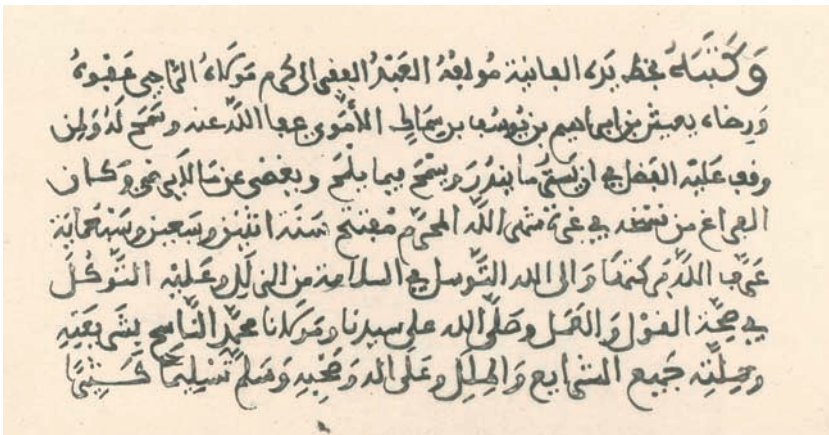 وَكَتَبَهُ بخط يَدِه الفانية مُؤلفهُ العَبْدُ الفقير الى كرم مَوْلَاهُ الرَّاجى عَفْوهُ
وَرِضاه يعيش بن ابراهيم بن يُوسُف بن سِمَاك الأُمَوى عفا اللّه عنه وسَمَحَ لَهُ وَلمن
وقف عَلَيْه الفضل في ان يَسْتُر ما يندُر وَيسْمَح فيما يلمَح ويغضى عن مَا وكان
الفراغ من نسخه في غرة شهر اللّه المحرّم مُفتتَح سَنَة اثنين وسَبعين وسَبْعمايَة
عَرَّفَ اللّه بَرَكتهَا وَالى الله التَّوسل في السلامة من الزلل وعَلَيْه التَّوكُّلَ
في صِحَّة القَوْل وَالعَمَل وصَلَّى الله على سيدنا ومَوْلانا محمّد النَّاسخ بشَريعَتِهِ
ومِلَّتِه جَميع الشرايع وَالمِلَل وعَلَى اله وَصَحْبِهِ وَسَلم تَسْليمًا كَثِيرًا